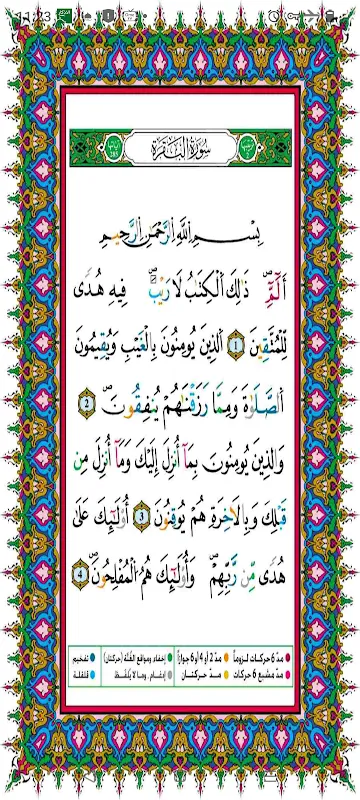 11:23
سورة البقرة
بِسْمِ اللَّهِ الرَّحْمَنِ الرَّحِيمِ
أَلَمِّ ذَلِكَ الْكِتَبُ لَا رَيْبَ فِيهِ هُدًى
لِّلْمُتَّقِينَ 1 الَّذِينَ يُومِنُونَ بِالْغَيْبِ وَيُقِيمُونَ
الصَّلَوةَ وَمِمَّا رَزَقْنَهُمْ يُنفِقُونَ 2
وَالَّذِينَ يُومِنُونَ بِمَا أُنزِلَ إِلَيْكَ وَمَا أُنزِلَ مِن
قَبْلِكَ وَبِالَاخِرَةِ هُمْ يُوقِنُونَ 3 أُوْلَئِكَ عَلَى
هُدًى مِّن رَّبِّهِمْ وَأُوْلَئِكَ هُمُ الْمُفْلِحُونَ 4
مدّ 6 حركات لزوماً مدّ 2 أو 4 أو 6 جوازاً إخفاء ومواقع الغُنّة (حركتان) تفخيم
مدّ مشبع 6 حركات مدّ حركتان إدغام، وما لا يُلفظ قلقلة